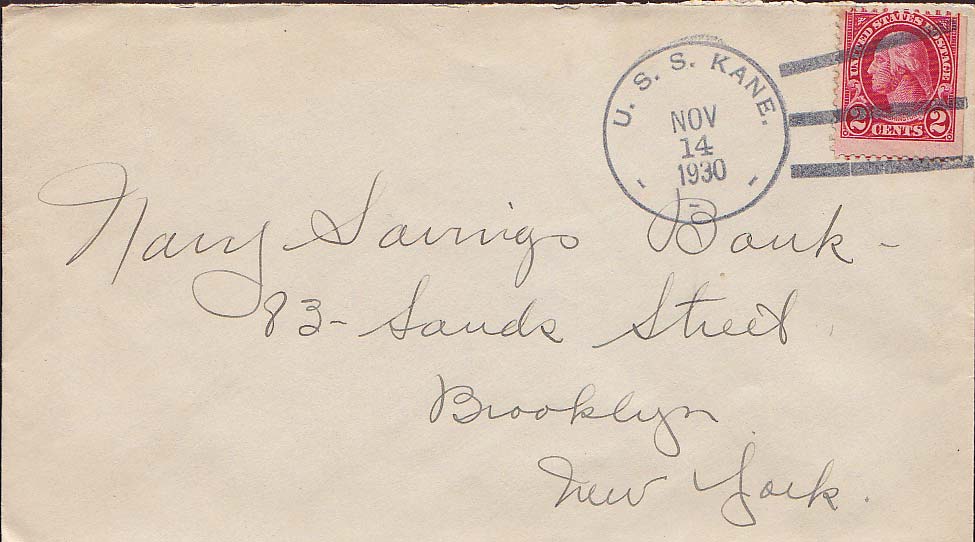 U. S. S. KANE.
NOV
14
1930
UNITED STATES POSTAGE
2 CENTS 2
Navy Savings Bank -
83 - Sands Street
Brooklyn
New York.